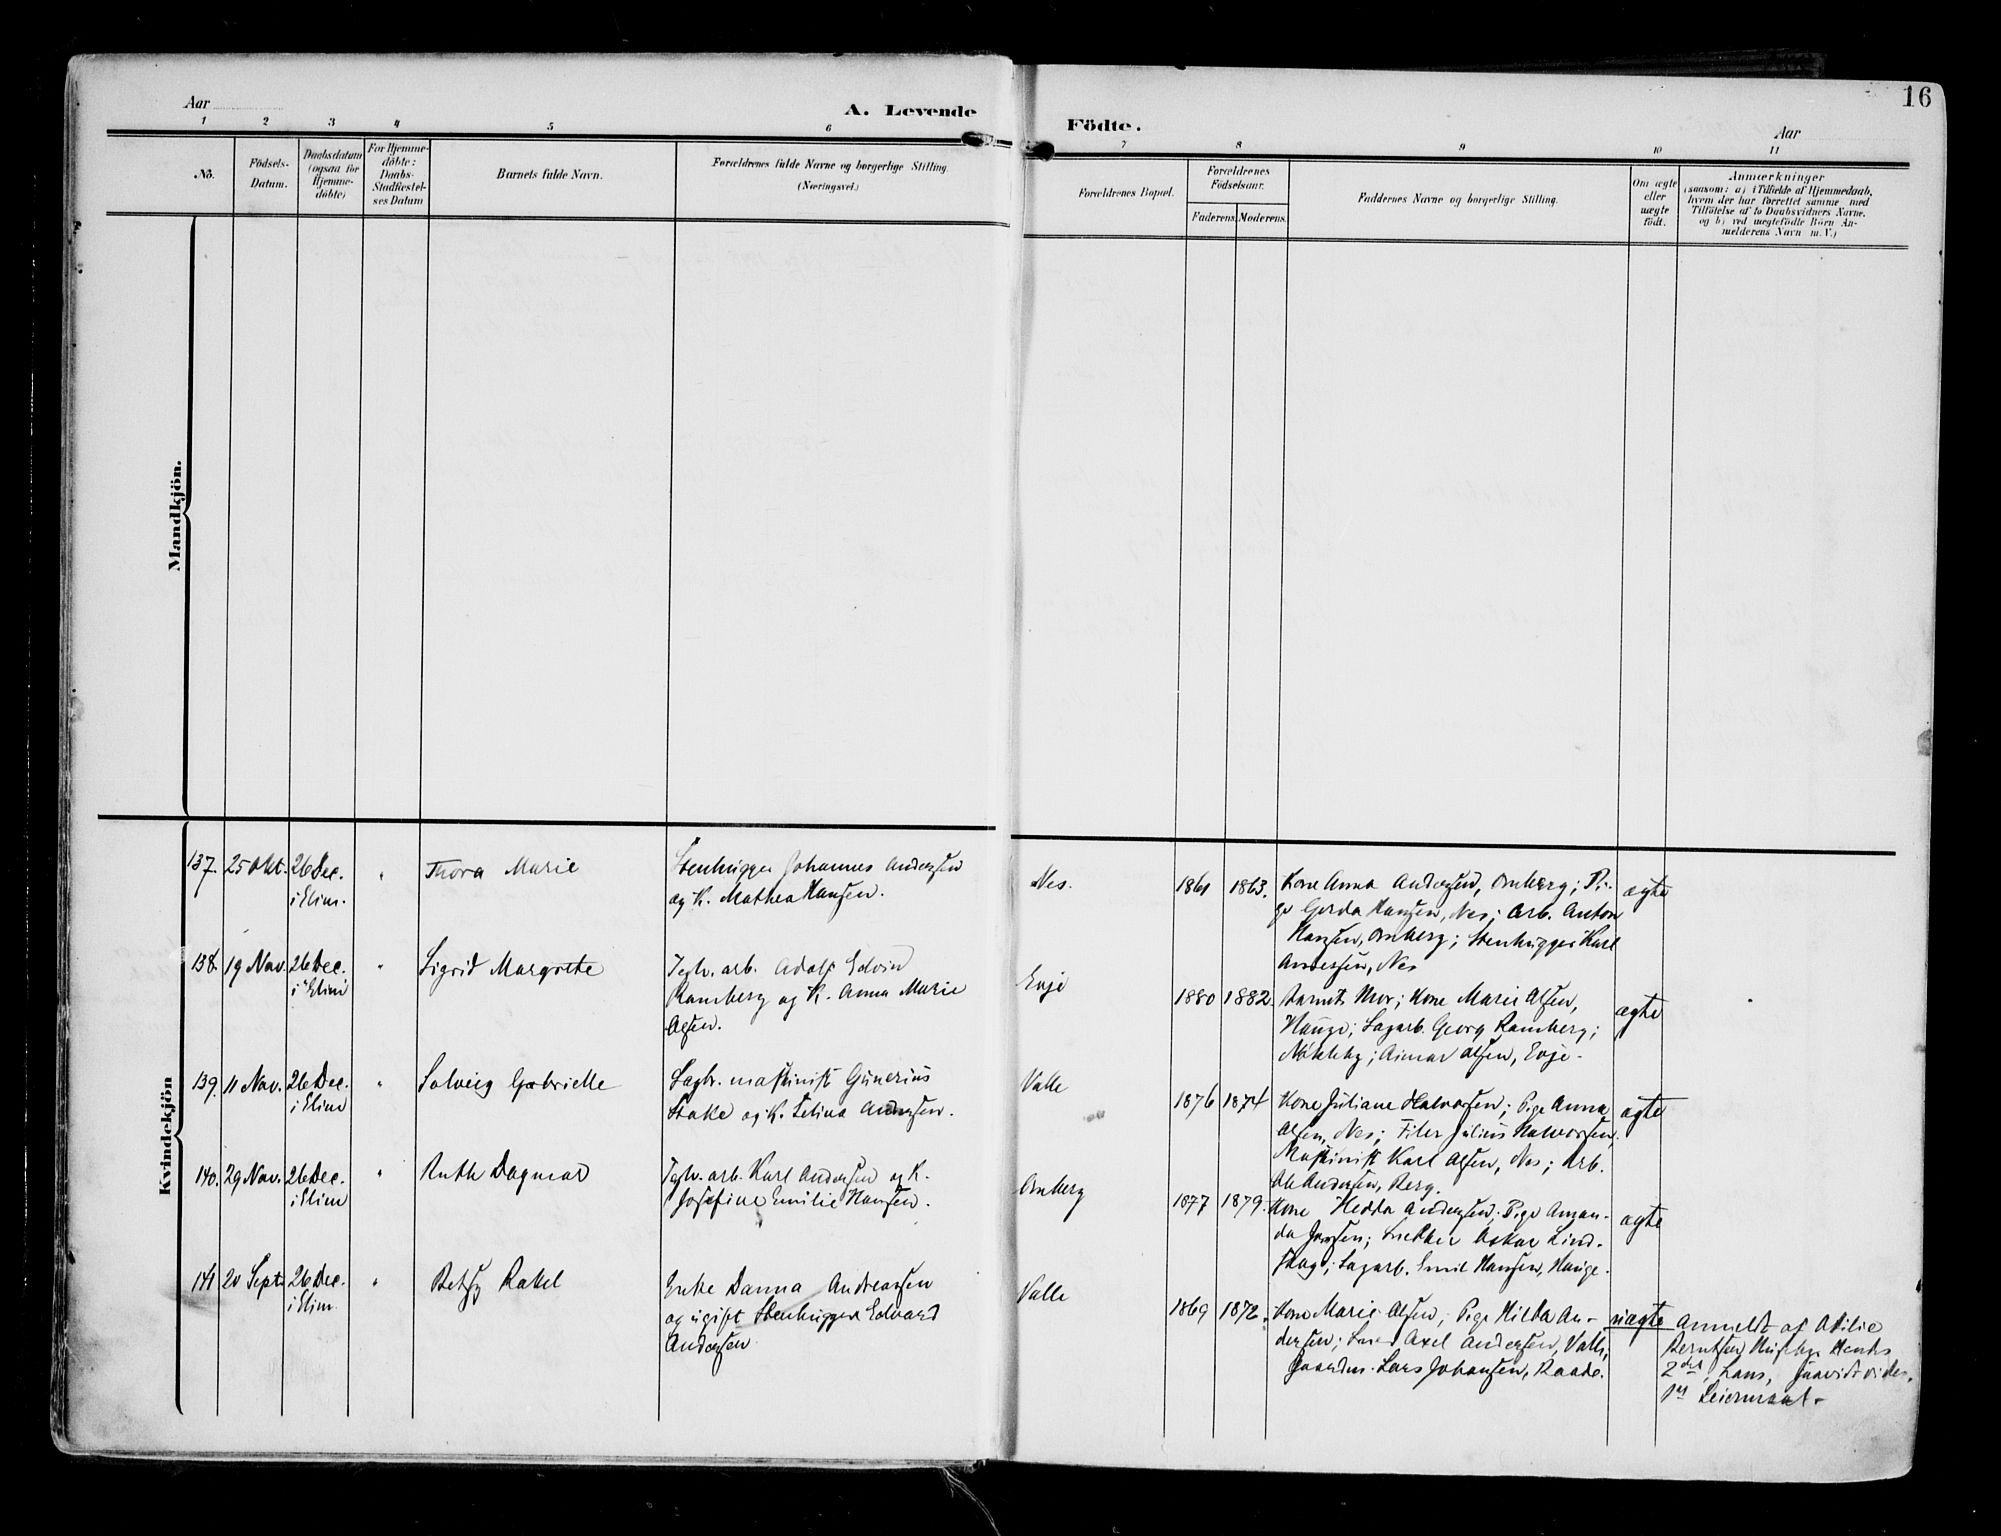 Aar
A. Levende
Födte.
16
Aar
1 2 3 4 5 6 7 8 9 10 11
No.
Födsels-
Datum.
Daabsdatum
(ogsaa for
Hjemme-
döbte)
For Hjemme-
döbte:
Daabs-
Stadfæstel-
ses Datum
Barnets fulde Navn.
Forældrenes fulde Navne og borgerlige Stilling.
(Næringsvei.)
Forældrenes Bopæl.
Forældrenes
Födselsaar.
Faderens.
Moderens.
Faddernes Navne og borgerlige Stilling.
Om ægte
eller
uægte
födt.
Anmærkninger
(saasom: a) i Tilfælde af Hjemmedaab,
hvem der har forrettet samme med
Tilföielse af to Daabsvidners Navne.
og b) ved uægtefödte Börn An-
melderens Navn m. V.)
Mandkjön.
Kvindekjön
137. 25 Okt. 26 Dec. " Thora Marie
i Elim.
Stenhugger Johannes Andersen
og K. Mathea Hansen.
Nes. 1861 1863.
Kone Anna Andersen, Omberg; Pi-
ge Gerda Hansen, Nes; Arb. Anton
Hansen, Omberg; Stenhugger Karl
Andersen, Nes
ægte
138. 19 Nov. 26 Dec. " Sigrid Margrethe
i Elim
Tglv. arb. Adolf Edvin
Ramberg og K. Anna Marie
Olsen.
Evje 1880 1882
Barnets Mor; Kone Marie Olsen,
Hauge; Sagarb. Georg Ramberg;
Nökleby; Aimar Olsen, Evje.
ægte
139. 11 Nov. 26 Dec. " Solveig Gabrielle
i Elim
Sagbr. maskinist Gunerius
Stake og K. Selina Andersen.
Valle 1876 1874
Kone Juliane Halvorsen; Pige Anna
Olsen, Nes; Filer Julius Halvorsen,
Maskinist Karl Olsen, Nes; Arb.
Ole Andersen, Berg.
ægte
140. 29 Nov. 26 Dec. " Ruth Dagmar
i Elim
Tglv. arb. Karl Andersen og K.
Josefine Emilie Hansen.
Omberg 1877 1879.
Kone Hedda Andersen; Pige Aman-
da Jansen; Snekker Oskar Lind-
skog; Sagarb. Emil Hansen, Hauge.
ægte
141 20 Sept. 26 Dec. " Betsy Rakel
i Elim.
Enke Danna Andreasen
og ugift Stenhugger Edvard
Andersen
Valle 1869 1872.
Kone Marie Olsen; Pige Hilda An-
dersen; Smed Axel Andersen, Valle,
Gaardm. Lars Johansen, Raade.
uægte
Anmeldt af Otilie
Berntsen
2det Lans,
1ste Leiermaal.